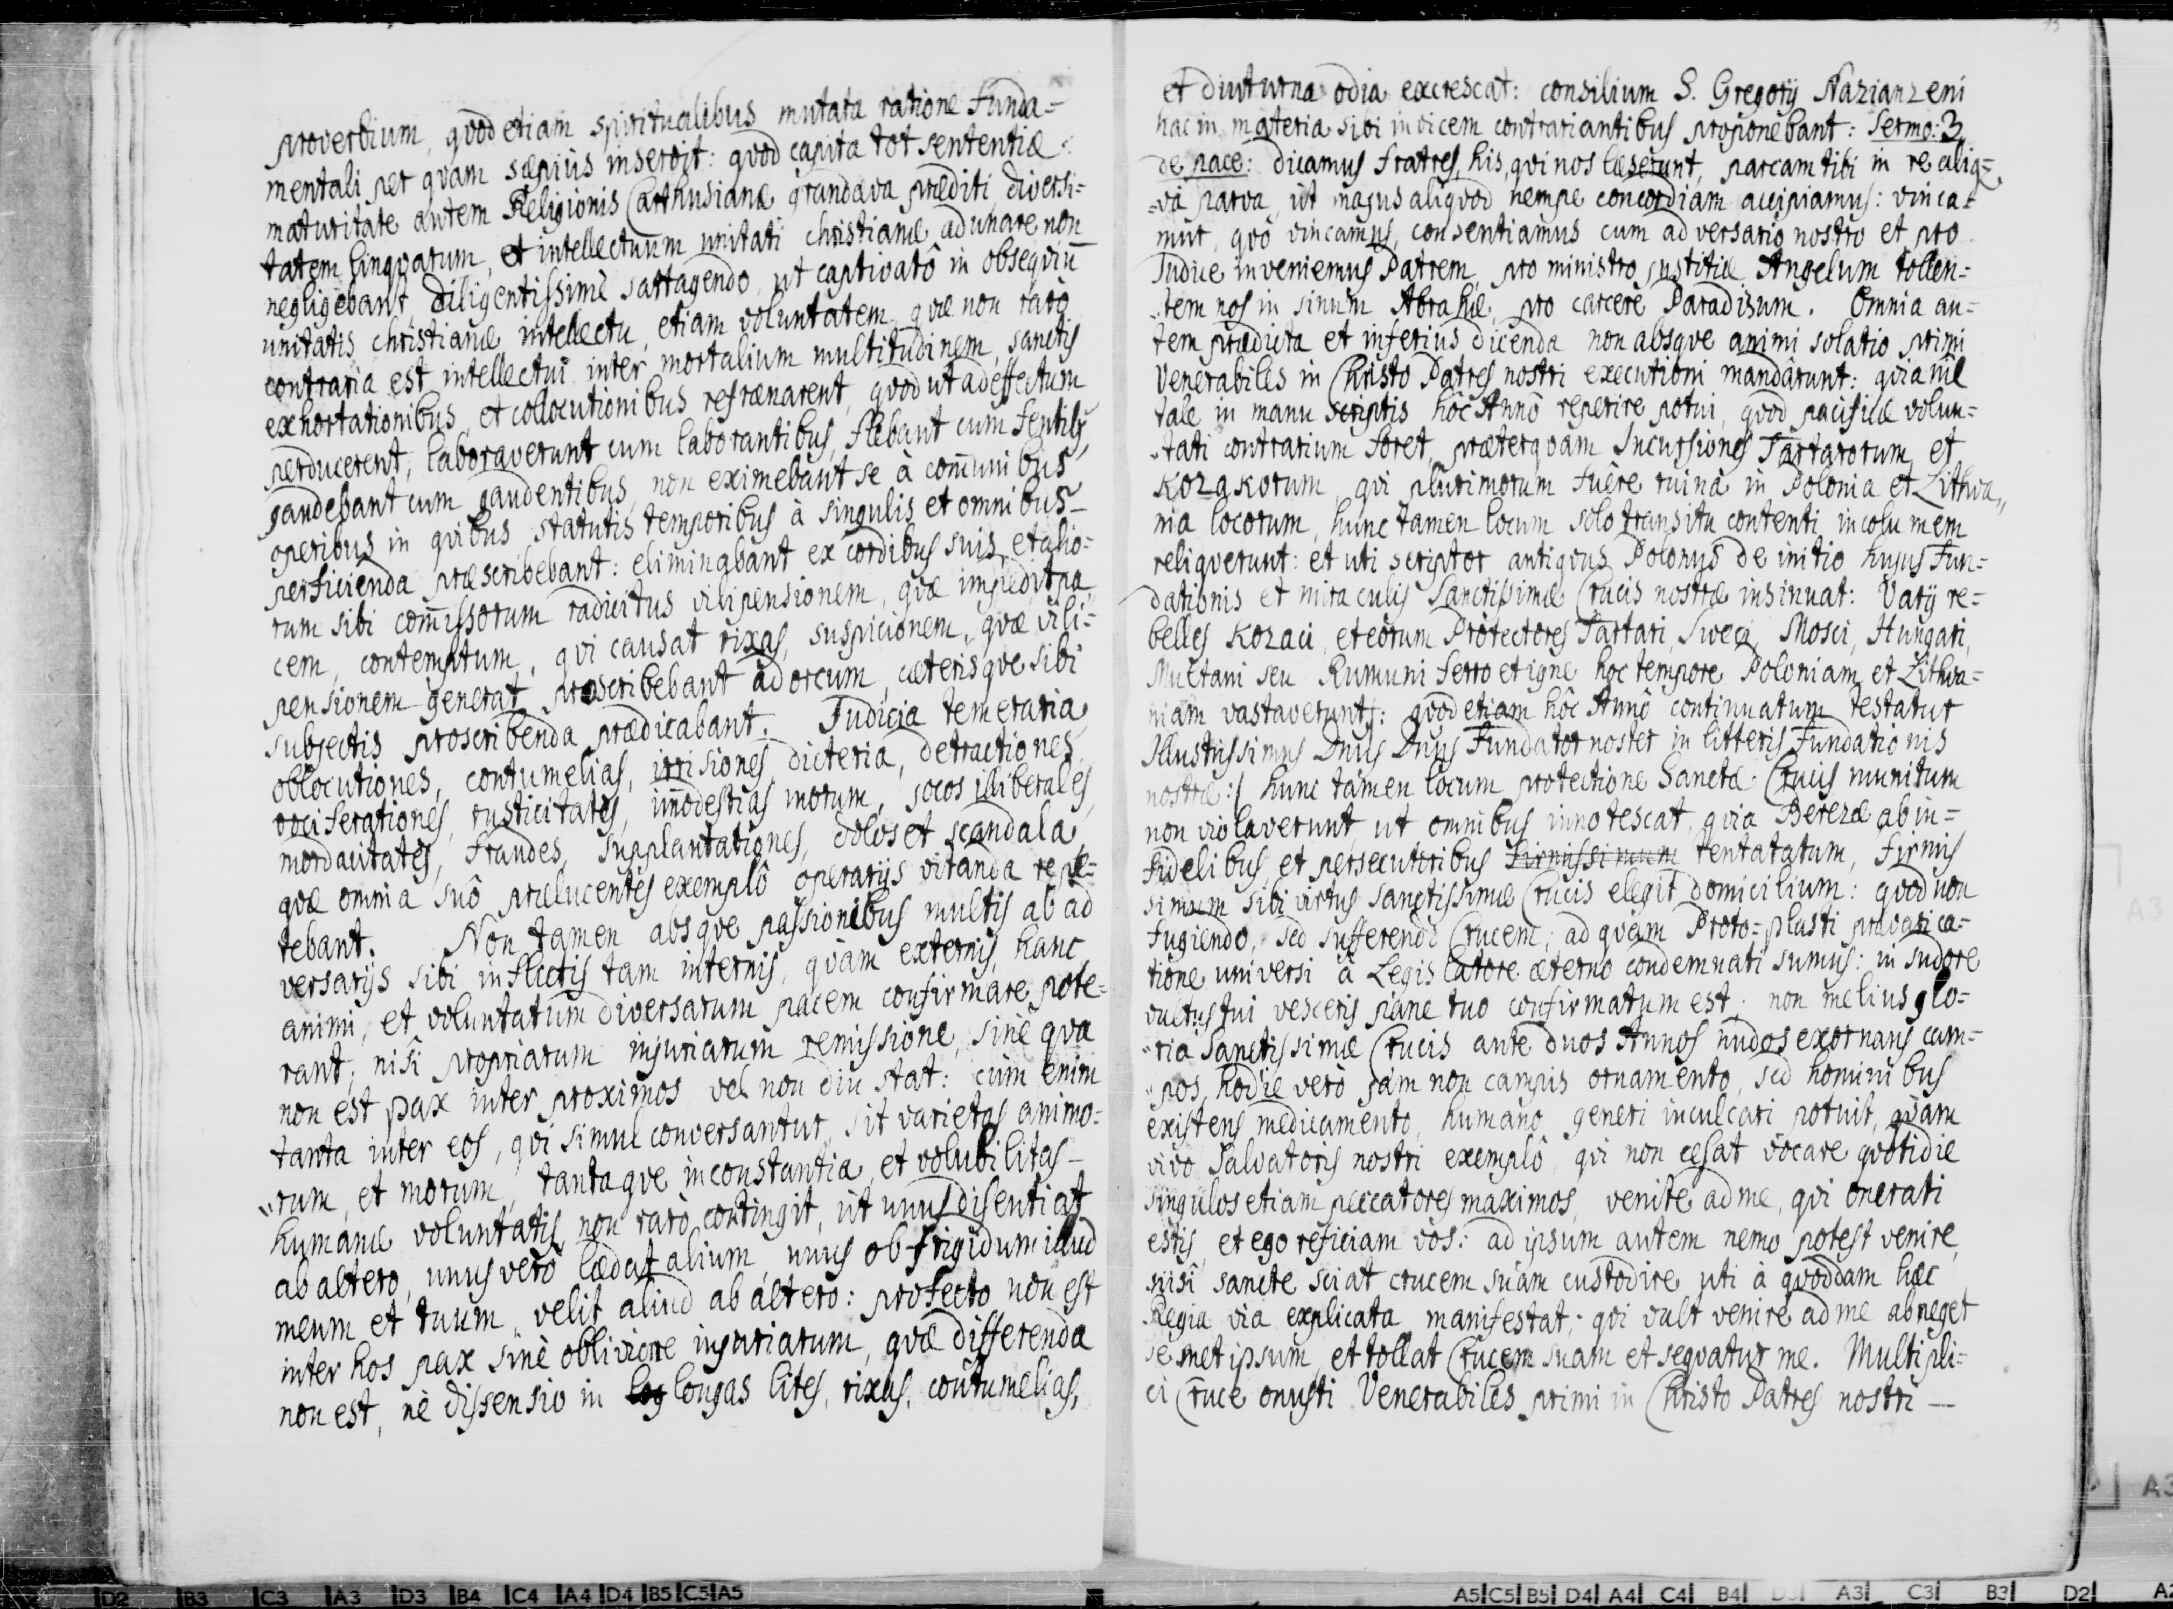 proverbium, qvod etiam spiritualibus mutata ratione funda=
mentali per qvam sæpiùs inservit: qvod capita tot sententiæ:
maturitate autem Religionis Carthusianæ grandæva præditi diversi=
tatem lingvarum, et intellectuum unitati christianæ adunare non
negligebant, diligentissimè sattagendo, ut captivatô in obseqviũ
unitatis christianæ intellectu, etiam voluntatem, qvæ non rarò
contraria est intellectui inter mortalium multitudinem, sanctis
exhortationibus, et collocutionibus refrænarent, qvod ut ad effectum
perducerent, laboraverunt cum laborantibus, flebant cum flentibus,
gaudebant cum gaudentibus, non eximebant se à com̃unibus
operibus in qvibus statutis temporibus à singulis et omnibus
perficienda præscribebant: eliminabant ex cordibus suis, et alio=
rum sibi com̃issorum radicitus vilipensionem, qvæ impedit pa
cem, contemptum, qvi causat rixas, suspicionem, qvæ vili=
pensionem generat, proscribebant ad orcum, cæterisqve sibi
subjectis proscribenda prædicabant. Judicia temeraria
oblocutiones, contumelias, irrisiones, dicteria, detractiones,
vociferationes, rusticitates, im̃odestias morum, jocos illiberales,
mordacitates, fraudes, supplantationes, dolos et scandala,
qvæ omnia suô prælucentes exemplô operarijs vitanda repe=
tebant. Non tamen absqve passionibus multis ab ad
versarijs sibi inflictis tam internis, qvàm externis, hanc
animi, et voluntatum diversarum pacem confirmare pote=
rant; nisi propriarum injuriarum remissione, sinè qva
non est pax inter proximos vel non diu stat: cùm enim
tanta inter eos, qvi simul conversantur, sit varietas animo=
rum, et morum, tantaqve inconstantia, et volubilitas
humanæ voluntatis, non rarò contingit, ùt unus disentiat
ab altero, unus verò lædat alium, unus ob frigidum illud
meum et tuum, velit aliud ab altero: profecto non est
inter hos pax sinè oblivione injuriarum, qvæ differenda
non est, nè dissensio in log longas lites, rixas, contumelias,
et diuturna odia excrescat: consilium S. Gregorij Nazianzeni
hac in materia sibi invicem contrariantibus proponebant: Sermo: 3
de pace: dicamus fratres, his, qvi nos læserunt, parcam tibi in re aliq=
=va parva, ùt majus aliqvod nempe concordiam accipiamus: vinca=
mur, qvô vincamus, consentiamus cum adversario nostro et pro
Judice inveniemus Patrem, pro ministro justitiæ Angelum tollen=
tem nos in sinum Abrahæ, pro carcere Paradisum. Omnia au=
tem prædicta et inferiùs dicenda non absqve animi solatio primi
Venerabiles in Christo Patres nostri executioni mandârunt: qvia nil
tale in manu scriptis hôc Annô reperire potui, qvod pacificæ volun=
tati contrarium foret, præterqvam Incursiones Tartarorum, et
Kozakorum, qvi plurimorum fuêre ruina in Polonia et Lithva,,
nia locorum, hunc tamen locum solo transitu contenti incolumem
reliqverunt: et uti scriptor antiqvus Polonus de initio hujus Fun=
dationis et miraculis Sanctissimæ Crucis nostræ insinuat: Varij re=
belles Kozaci, et eorum Protectores Tartari, Sweci, Mosci, Hungari,
Multani seu Rumuni ferro et igne hoc tempore Poloniam et Lithva=
niam vastaverunt: qvod etiam hôc Annô continuatum testatur
Illustrissimus Dnus Dnus Fundator noster in litteris Fundationis
nostræ:/ hunc tamen locum protectione Sanctæ Crucis munitum
non violaverunt, ut omnibus innotescat, qvia Berezæ ab in=
fidelibus, et persecutoribus firmissimum tentatatum, firmis
simum sibi virtus Sanctissimæ Crucis elegit domicilium: qvod non
fugiendo, sed sufferendo Crucem, ad qvam Proto=plasti prævarica=
tione universi à Legislatore æterno condemnati sumus: in sudore
vultus tui vesceris pane tuo confirmatum est; non melius glo=
ria Sanctissimæ Crucis ante duos Annos nudos exornans cam=
pos, hodie verò jam non campis ornamento, sed hominibus
existens medicamento, humano generi inculcari potuit, qvam
vivo Salvatoris nostri exemplô, qvi non cessat vocare qvotidie
singulos etiam peccatores maximos, venite ad me, qvi onerati
estis, et ego reficiam vos: ad ipsum autem nemo potest venire,
nisi sancte sciat crucem suam custodire, uti à qvodam hæc
Regia via explicata manifestat; qvi vult venire ad me abneget
semet ipsum, et tollat Crucem suam et seqvatur me. Multipli=
ci Cruce onusti Venerabiles primi in Christo Patres nostri —